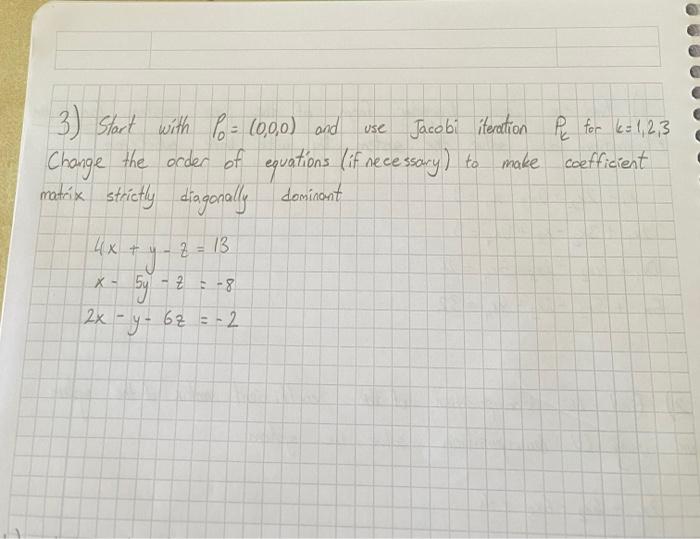 3) Start with P₀ = (0,0,0) and use Jacobi iteration Pₖ for k=1,2,3
Change the order of equations (if necessary) to make coefficient
matrix strictly diagonally dominant
4x + y - z = 13
x - 5y - z = -8
2x - y - 6z = -2